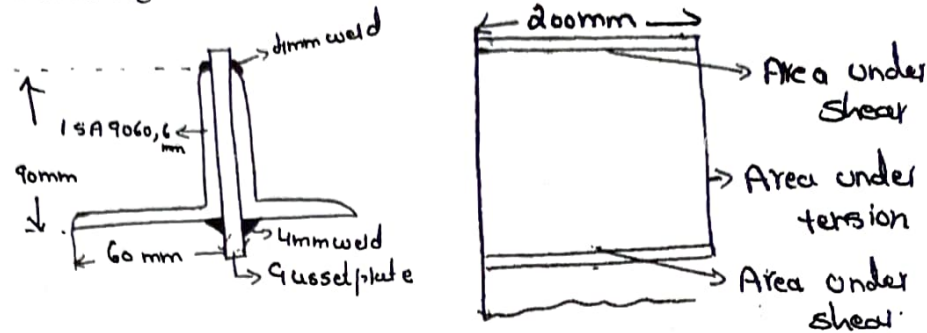 4mm weld
ISA 9060, 6 mm
90mm
60 mm
4mm weld
Gusset plate
200mm
Area under
shear
Area under
tension
Area under
shear.